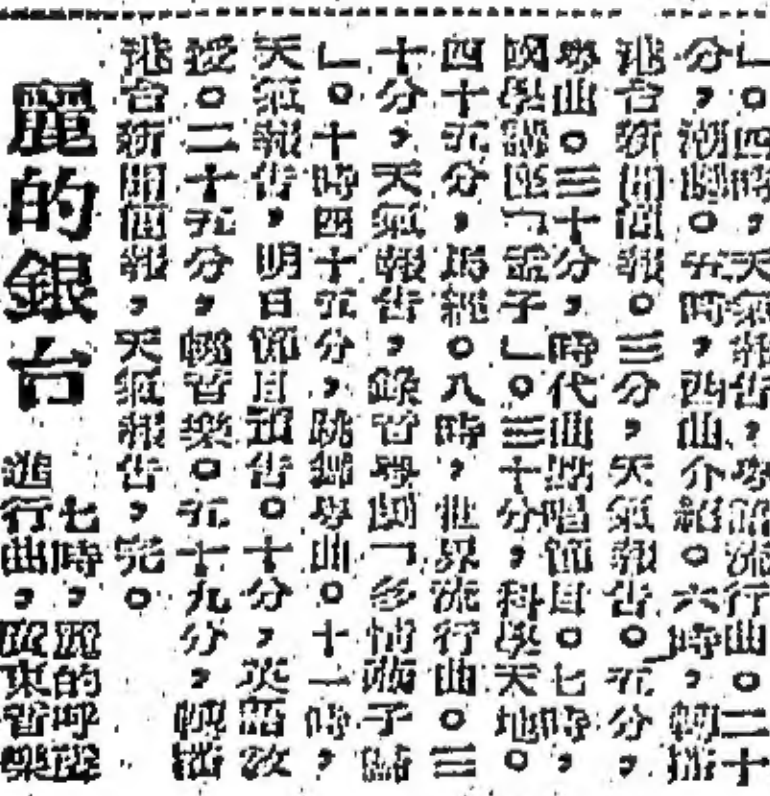 」。四時,天氣報告,粵語流行曲。二十
分,潮劇。五時,西曲介紹。六時,轉播
港台新聞簡報。三分,天氣報告。五分,
粵曲。三十分,時代曲點唱節目。七時,
國學講座「孟子」。三十分,科學天地。
四十五分,馬經。八時,世界流行曲。三
十分,天氣報告,錄音粵劇「多情燕子歸
」。十時四十五分,跳舞粵曲。十一時,
天氣報告,明日節目預告。十分,英語教
授。二十五分,輕音樂。五十九分,轉播
港台新聞簡報,天氣報告,完。
麗的銀台
七時,麗的呼聲
進行曲,廣東音樂